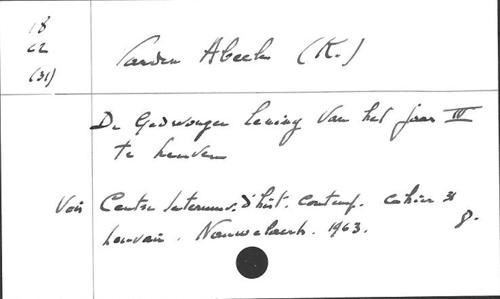 18
C2
(31)
Vanden Abeele (K.)
De Gedwongen lening van het jaar IV
te Leuven
Voir Centre Interuniv. d'hist. contemp. cahier 31
Louvain. Nauwelaerts. 1963. 8.